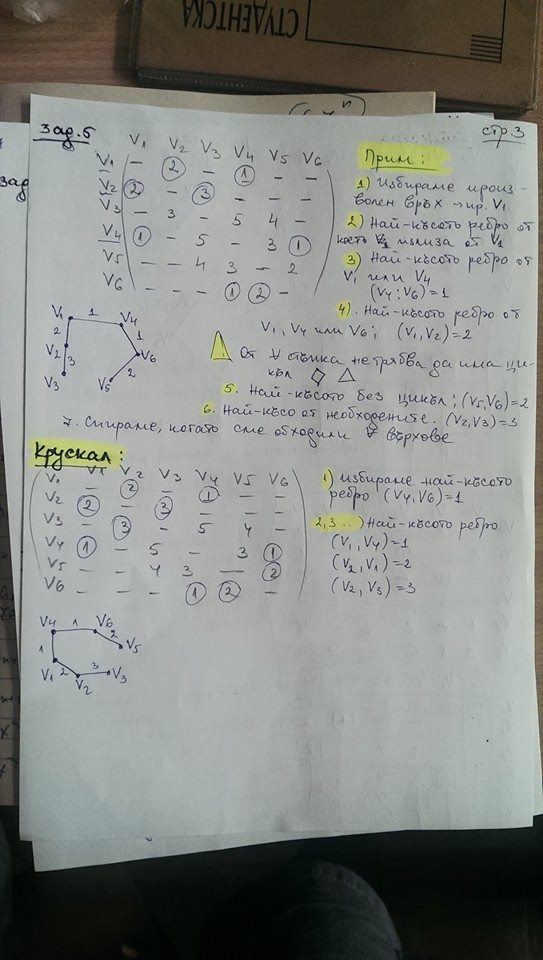 СТУДЕНТСКА
зад.5
стр.3
V1 V2 V3 V4 V5 V6
V1 - 2 - 1 - -
V2 2 - 3 - - -
V3 - 3 - 5 4 -
V4 1 - 5 - 3 1
V5 - - 4 3 - 2
V6 - - - 1 2 -
Прим:
1) Избираме произ-
волен връх → пр. V1
2) Най-късото ребро от
което V1 излиза от V1
3) Най-късото ребро от
V1 или V4
(V4; V6) = 1
4). Най-късото ребро от
V1, V4 или V6; (V1, V2) = 2
От ∀ стъпка не трябва да има ци-
къл
5. Най-късото без цикъл; (V5, V6) = 2
6. Най-късо от необходените. (V2, V3) = 3
7. Спираме, когато сме обходили ∀ върхове
V1 1 V4
2 1
V2 V6
3 2
V3 V5
Крускал:
V1 V2 V3 V4 V5 V6
V1 - 2 - 1 - -
V2 2 - 3 - - -
V3 - 3 - 5 4 -
V4 1 - 5 - 3 1
V5 - - 4 3 - 2
V6 - - - 1 2 -
1) избираме най-късото
ребро (V4, V6) = 1
2,3...) Най-късото ребро
(V1, V4) = 1
(V2, V1) = 2
(V2, V3) = 3
V4 1 V6
2 V5
1
V1 2 V2 3 V3